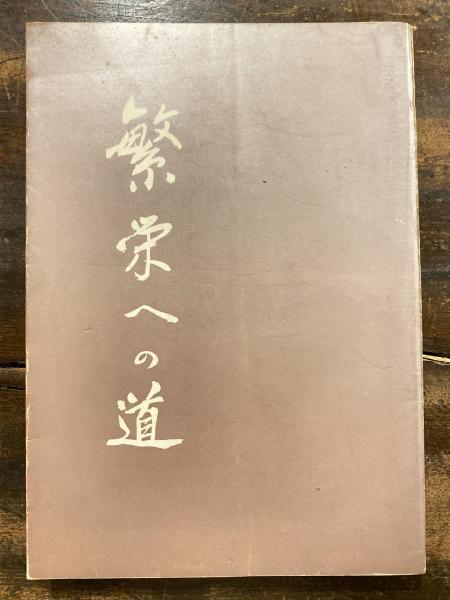 繁栄への道